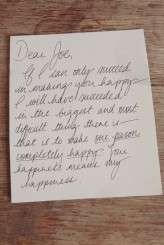 Dear Joe,
If I can only succeed
in making you happy,
I will have succeeded
in the biggest and most
difficult thing there is -
that is to make one person
completely happy. Your
happiness means my
happiness.